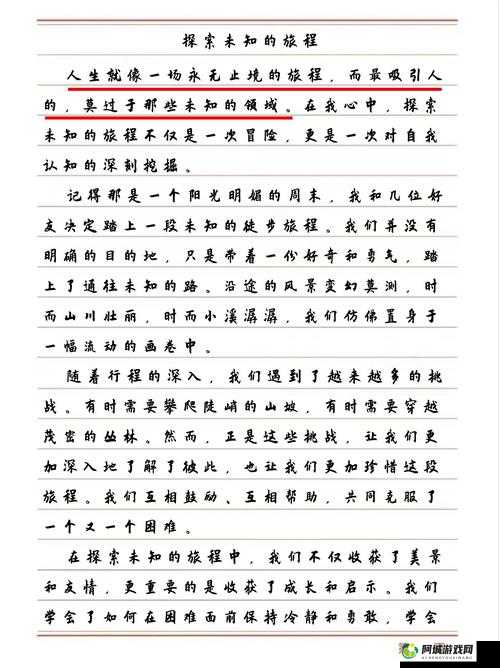 探索未知的旅程
人生就像一场永无止境的旅程，而最吸引人
的，莫过于那些未知的领域。在我心中，探索
未知的旅程不仅是一次冒险，更是一次对自我
认知的深刻挖掘。
记得那是一个阳光明媚的周末，我和几位好
友决定踏上一段未知的徒步旅程。我们并没有
明确的目的地，只是带着一份好奇和勇气，踏
上了通往未知的路。沿途的风景变幻莫测，时
而山川壮丽，时而小溪潺潺，我们仿佛置身于
一幅流动的画卷中。
随着行程的深入，我们遇到了越来越多的挑
战。有时需要攀爬陡峭的山坡，有时需要穿越
茂密的丛林。然而，正是这些挑战，让我们更
加深入地了解了彼此，也让我们更加珍惜这段
旅程。我们互相鼓励、互相帮助，共同克服了
一个又一个困难。
在探索未知的旅程中，我们不仅收获了美景
和友情，更重要的是收获了成长和启示。我们
学会了如何在困难面前保持冷静和勇敢，学会
阿城游戏网